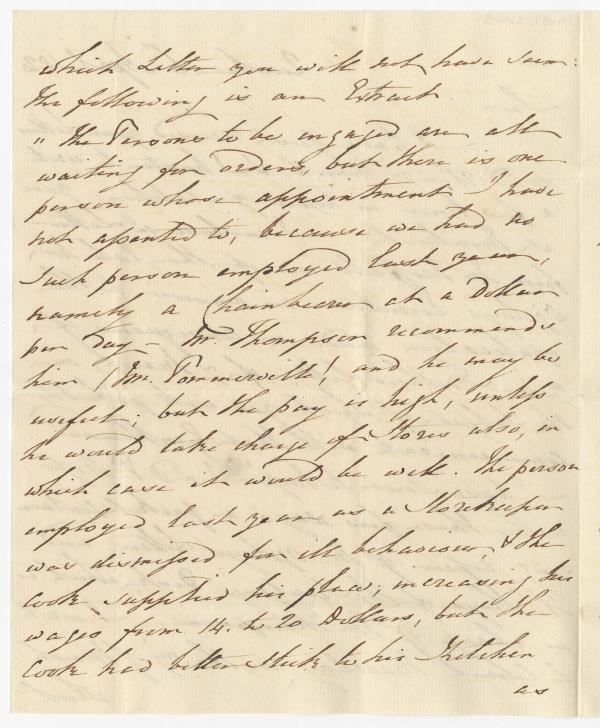 which Letter you will not have seen:
the following is an Extract.
"The Persons to be engaged are all
waiting for orders, but there is one
person whose appointment I have
not assented to, because we had no
such person employed last year,
namely a Chainbearer at a Dollar
per day – Mr. Thompson recommends
him (Mr. Sommerville), and he may be
useful; but the pay is high, unless
he would take charge of Stores also, in
which case it would be well. The person
employed last year as a Storekeeper
was dismissed for ill behaviour, & the
Cook supplied his place; increasing his
wages from 14. to 20 Dollars, but the
Cook had better stick to his Kitchen
as